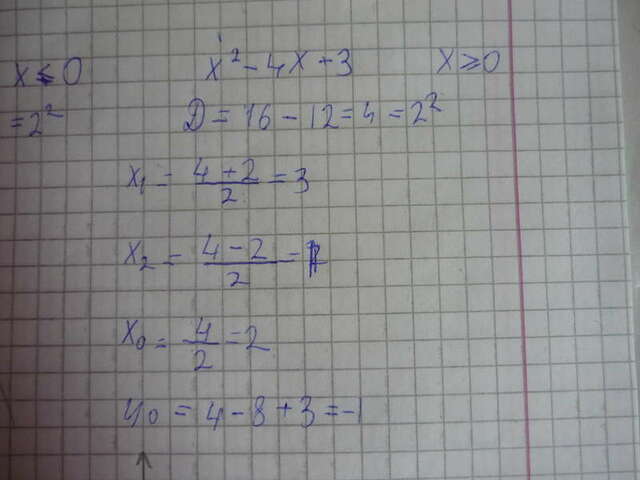 x < 0 x² - 4x + 3 x ≥ 0
= 2² D = 16 - 12 = 4 = 2²
x₁ = (4 + 2)/2 = 3
x₂ = (4 - 2)/2 = 1
x₀ = 4/2 = 2
y₀ = 4 - 8 + 3 = -1